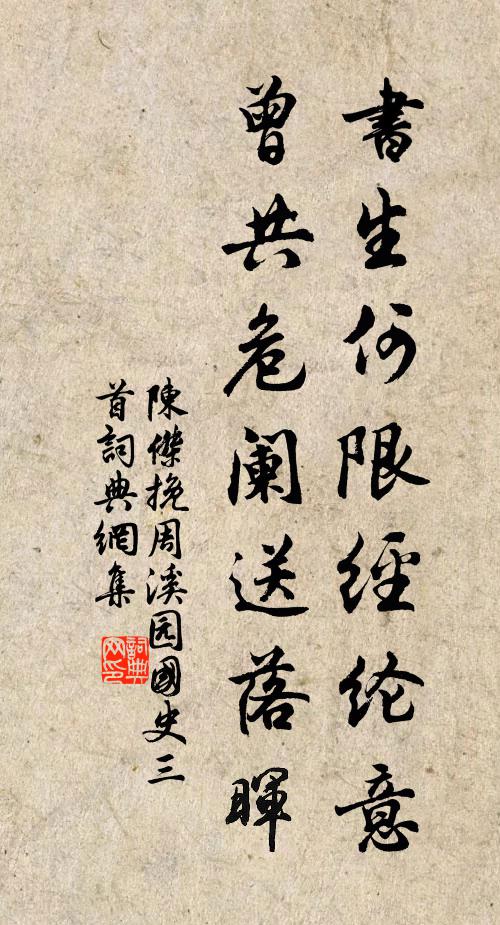 書生何限經纶意
曾共危阑送落暉
陳傑挽周溪园國史三
首詞典網集
詞典网印